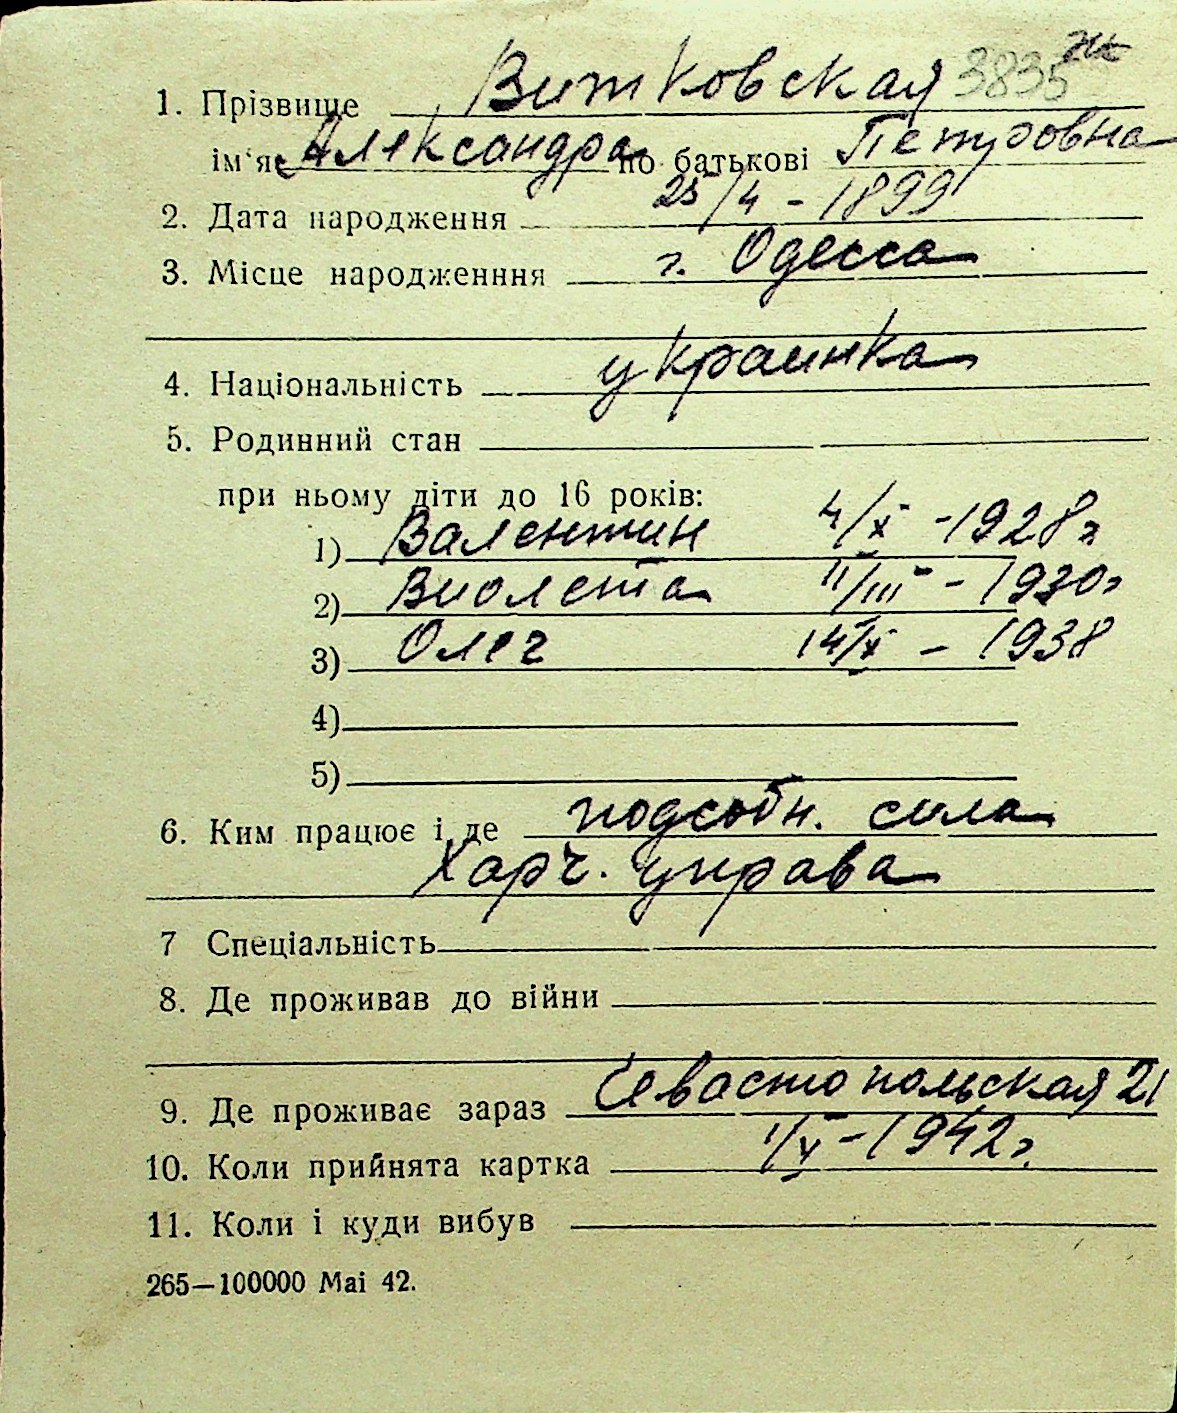 1. Прізвище Витковская 3835
ім‘я Александра по батькові Петровна
2. Дата народження 25/4 - 1899
3. Місце народженння г. Одесса
4. Національність украинка
5. Родинний стан
при ньому діти до 16 років:
1) Валентин 4/X - 1928 г
2) Виолета 11/III - 1930 г
3) Олег 14/X - 1938
4)
5)
6. Ким працює і де подсобн. сила
Харч. управа
7 Спеціальність
8. Де проживав до війни
9. Де проживає зараз Севастопольская 21
10. Коли прийнята картка 1/V - 1942 г.
11. Коли і куди вибув
265—100000 Маі 42.